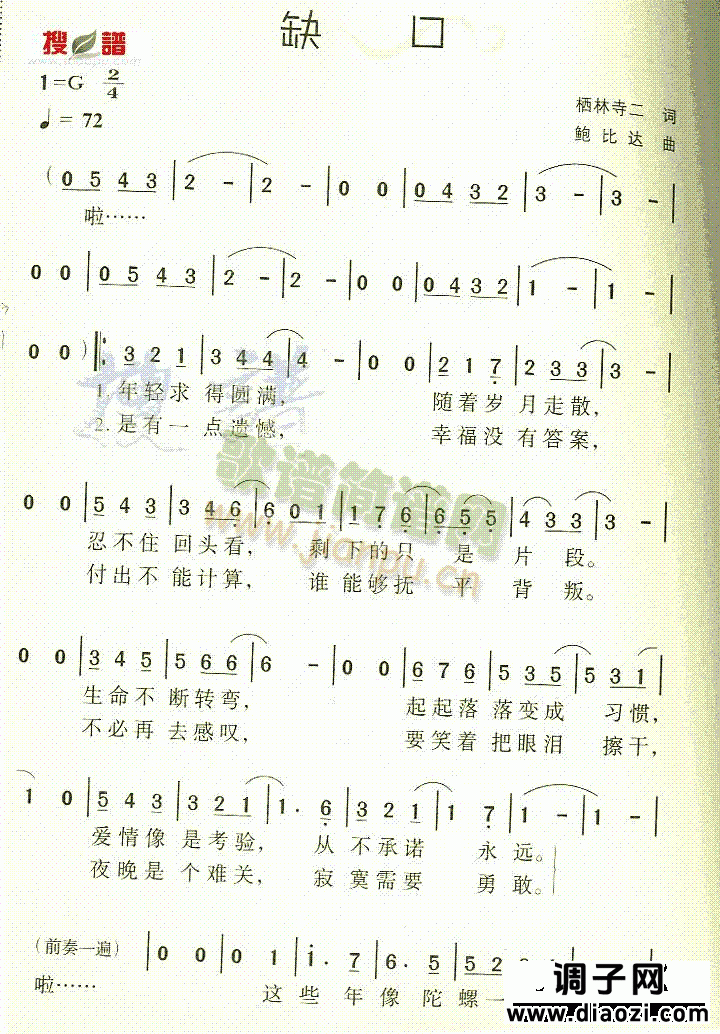 缺 口
搜 谱
1=G 2/4
♩= 72
栖林寺二 词
鲍比达 曲
( 0 5 4 3 | 2 - | 2 - | 0 0 | 0 4 3 2 | 3 - | 3 - |
啦……
0 0 | 0 5 4 3 | 2 - | 2 - | 0 0 | 0 4 3 2 | 1 - | 1 - |
0 0 ) ‖: 3 2 1 | 3 4 4 | 4 - | 0 0 | 2 1 7 | 2 3 3 | 3 - |
1. 年轻求 得圆满, 随着岁 月走散,
2. 是有一 点遗憾, 幸福没 有答案,
歌谱简谱网
www.jianpu.cn
0 0 | 5 4 3 | 3 4 6 | 6 0 1 | 1 7 6 | 6 5 5 | 4 3 3 | 3 - |
忍不住 回头看, 剩 下的只 是 片 段。
付出不 能计算, 谁 能够抚 平 背 叛。
0 0 | 3 4 5 | 5 6 6 | 6 - | 0 0 | 6 7 6 | 5 3 5 | 5 3 1 |
生命不 断转弯, 起起落 落变成 习惯,
不必再 去感叹, 要笑着 把眼泪 擦干,
1 0 | 5 4 3 | 3 2 1 | 1 · 6 | 3 2 1 | 1 7 | 1 - | 1 - |
爱情像 是考验, 从 不承诺 永远。
夜晚是 个难关, 寂 寞需要 勇敢。
(前奏一遍) | 0 0 | 0 0 1 | 1 · 7 | 6 · 5 | 5 2
啦…… 这 些 年 像 陀 螺 一
调子网
www.diaozi.com